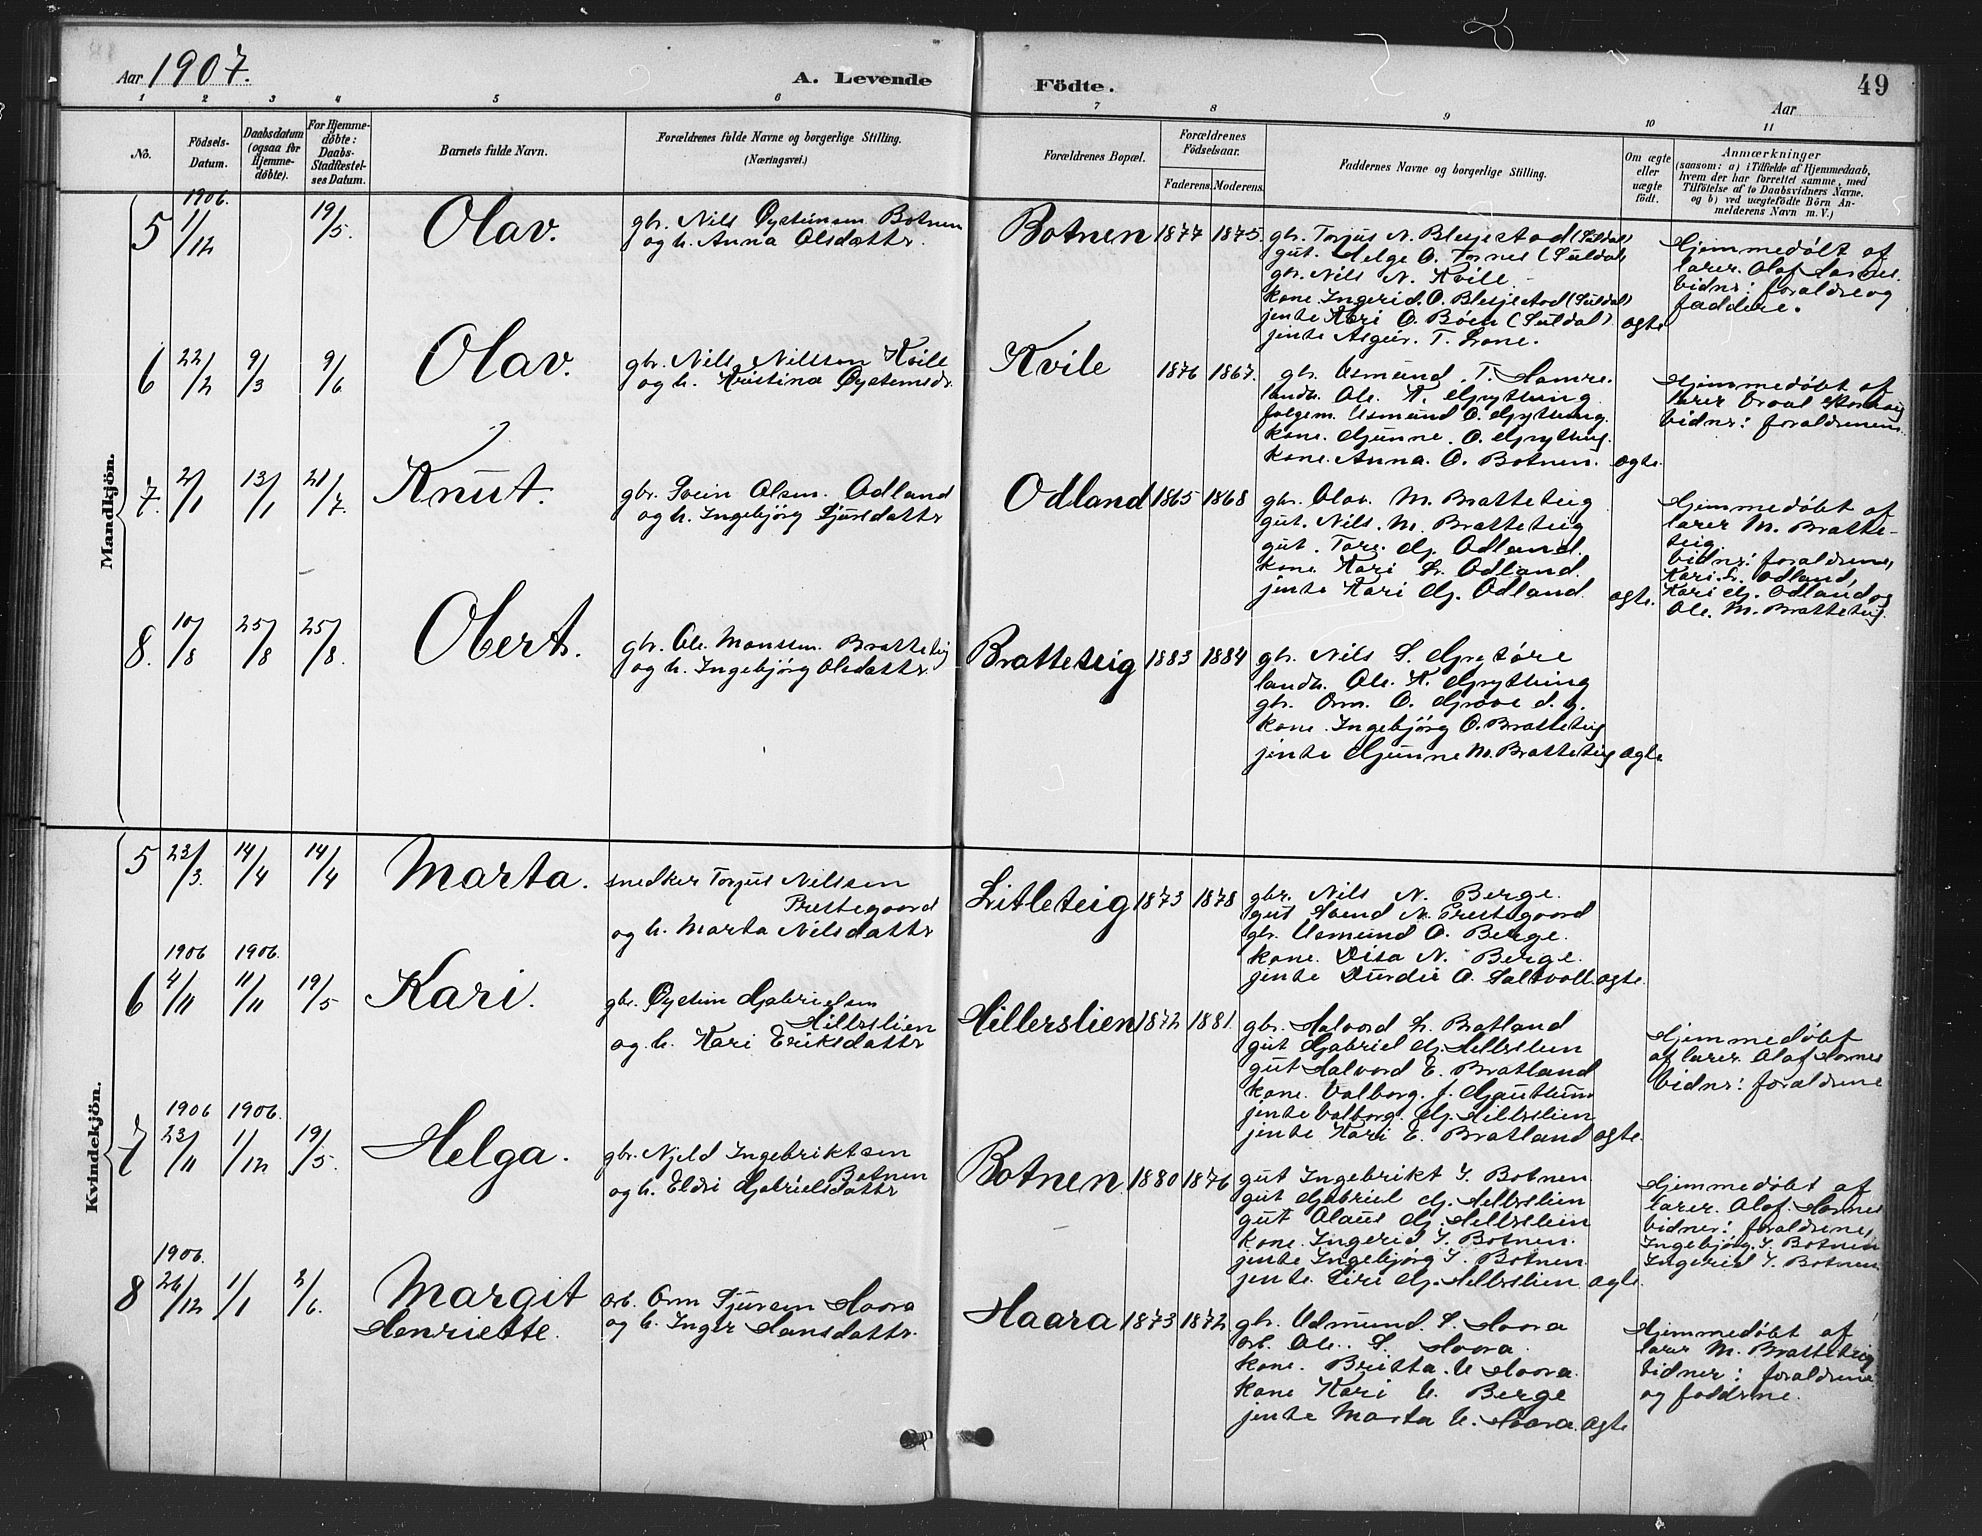 Aar 1907.
A. Levende Födte.
49
Aar
1 2 3 4 5 6 7 8 9 10 11
No.
Födsels-Datum.
Daabsdatum (ogsaa for Hjemmedöbte).
For Hjemmedöbte: Daabs-Stadfæstelses Datum.
Barnets fulde Navn.
Forældrenes fulde Navne og borgerlige Stilling. (Næringsvei.)
Forældrenes Bopæl.
Forældrenes Födselsaar.
Faderens. Moderens.
Faddernes Navne og borgerlige Stilling.
Om ægte eller uægte födt.
Anmærkninger
(saasom: a) i Tilfælde af Hjemmedaab, hvem der har forrettet samme, med Tilföielse af to Daabsvidners Navne, og b) ved uægtefödte Börn Anmelderens Navn m. V.)
Mandkjön.
5 1906. 1/12 19/5. Olav.
gbr. Nils Öysteinsen Botnen
og h. Anna Olsdattr.
Botnen 1877 1875.
gbr. Torjus N. Blesjestod (Suldal)
gut. Helge O. Tornes (Suldal)
gbr. Nils N. Kvile
kone Ingerid O. Blesjestod (Suldal)
jente Kari O. Böen (Suldal)
jente Asgür. T. Lone.
ægte
Hjemmedöbt af
lærer Olaf Hornes.
vidnr: foraldre og
faddere.
6 22/2 9/3 9/6 Olav.
gbr. Nils Nilssen Kvile
og h. Kristina Öysteinsdr.
Kvile 1876 1867.
gbr. Asmund T. Hamre.
landh. Ole K. Grytting
folgem. Asmund O. Grytting.
kone. Gunne O. Grytting.
kone. Anna O. Botnen.
ægte.
Hjemmedöbt af
lærer
vidnr: foraldrenene
7. 2/1 13/1 21/7. Knut.
gbr. Svein Olsen Odland
og h. Ingebjörg Sjursdattr
Odland 1865 1868
gbr. Olav M. Bratteteig
gut. Nils M. Bratteteig
gut. Tore G. Odland.
kone Kari L. Odland.
jente Kari G. Odland.
ægte.
Hjemmedöbt af
lærer M. Bratte-
teig.
vidnr: foraldrene,
Kari L. Odland,
Kari G. Odland og
Ole M. Bratteteig.
8. 10/8 25/8 25/8. Obert.
gbr. Ole Monssen Bratteteig
og h. Ingebjörg Olsdattr.
Bratteteig 1883 1884
gbr. Nils S. Grytöre
landh. Ole K. Grytting
gbr. Orm O. Grove d. y.
kone Ingebjörg O. Bratteteig
jente Gunne M. Bratteteig
ægte
Kvindekjön.
5 23/3. 14/4 14/4 Marta.
snedker Torjus Nilssen
Prestegaard
og h. Marta Nilsdattr
Litleteig 1873 1878
gbr. Nils N. Berge.
gut Svend N. Prestegaard
gbr. Asmund O. Berge.
kone. Disa N. Berge.
jente Durdei O. Saltvoll.
ægte.
6 1906 4/11 1906. 11/11 19/5 Kari.
gbr. Öystein Gabrielsen
Hillerslien
og h. Kari Eriksdattr
Hillerslien 1872 1881.
gbr. Halvord L. Bratland
gut Gabriel G. Hillerslien
gut Halvord E. Bratland
kone. Valborg J. Gautun
jente Valborg. G. Hillerslien
jente Kari E. Bratland
ægte.
Hjemmedöbt
af lærer Olaf Hornes
Vidnr: forældrene
7 1906 23/11 1906. 1/12 19/5. Helga.
gbr. Njeld Ingebriktsen
Botnen
og h. Eldri Gabrielsdattr
Botnen 1880 1876
gut Ingebrikt I. Botnen
gut Gabriel G. Hillerslien
gut Olaus G. Hillerslien
kone Ingerid I. Botnen.
jente Ingebjörg I. Botnen.
jente Siri G. Hillerslien
ægte.
Hjemmedöbt af
lærer Olaf Hornes
vidner: foraldrene,
Ingebjörg I. Botnen
Ingerid I. Botnen
8 1906. 26/12 1/1 2/6. Margit
Henriette.
arb. Orm Sjursen Haara
og h. Inger Hansdattr.
Haara 1873 1872
gbr. Admund S. Haara
arb. Ole S. Haara.
kone. Britta A. Haara.
kone Kari A. Berge
jente Marta A. Haara.
ægte
Hjemmedöbt af
lærer M. Bratteteig
vidner: foraldrene
og faddrene.